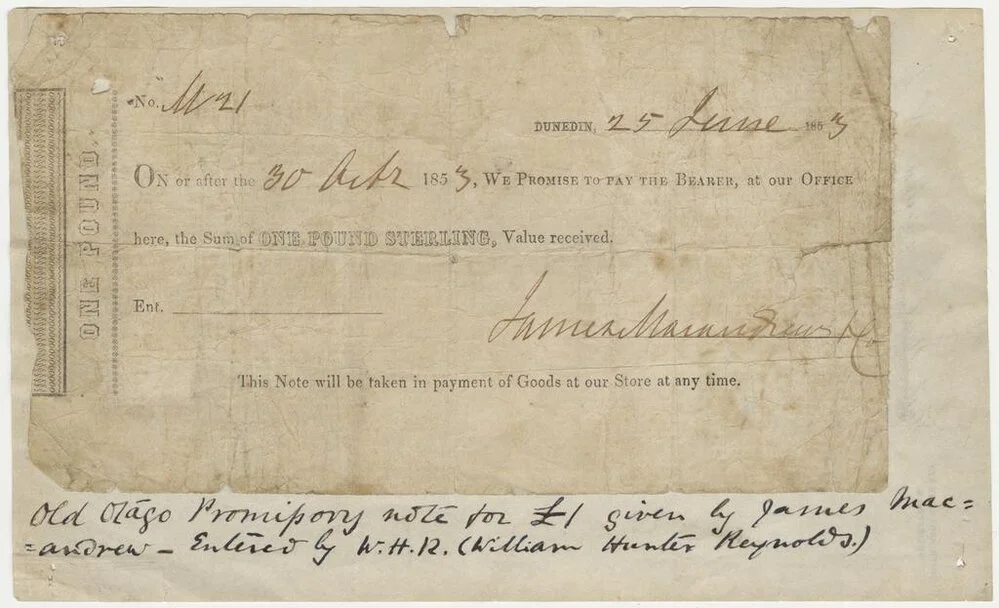 ONE POUND.
No. M 21
DUNEDIN, 25 June 1853
ON or after the 30 Octr 1853, WE PROMISE TO PAY THE BEARER, at our OFFICE
here, the Sum of ONE POUND STERLING, Value received.
Ent.
James Macandrew & Co
This Note will be taken in payment of Goods at our Store at any time.
Old Otāgo Promissory note for £1 given by James Mac=
=andrew – Entered by W.H.R. (William Hunter Reynolds.)